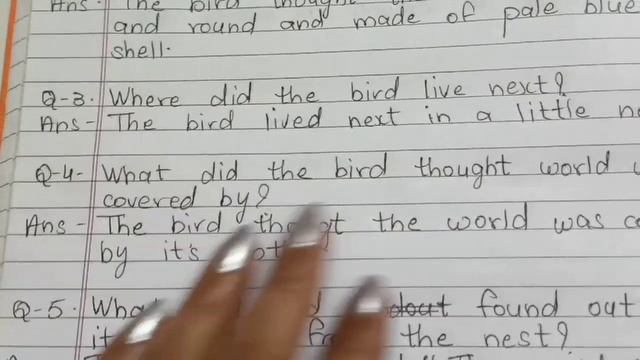 Ans. The bird thought
and round and made of pale blue
shell.
Q-3. Where did the bird live next?
Ans- The bird lived next in a little
Q-4. What did the bird thought world
covered by?
Ans- The bird the world was
by it's
Q-5. What found out
the nest?